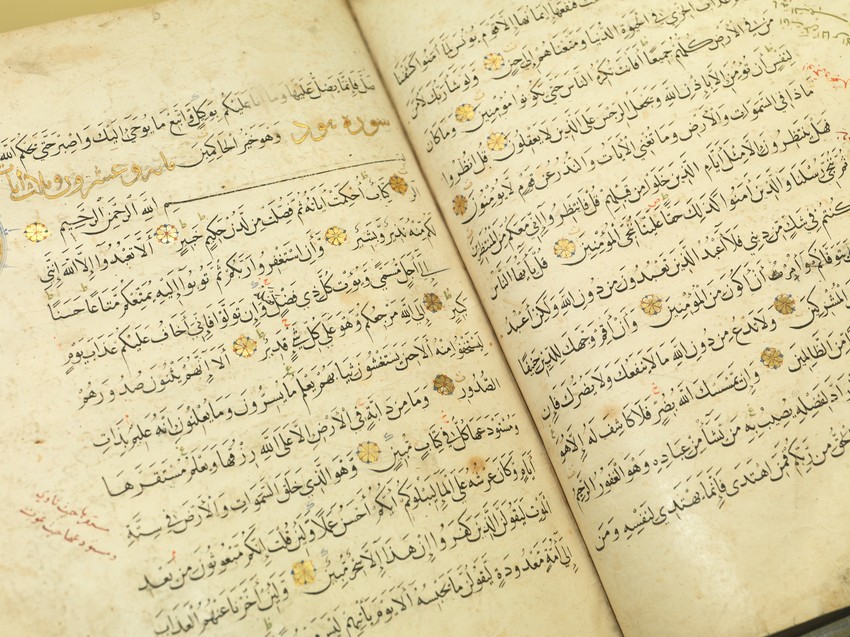 فنفعها ايمانها الا قوم يونس لما آمنوا كشفنا
عذاب الخزي في الحيوة الدنيا ومتعناهم الى حين ولو شا ربك لامن
من في الارض كلهم جميعا افانت تكره الناس حتى يكونوا مومنين وما كان
لنفس ان تومن الا باذن الله ويجعل الرجس على الذين لا يعقلون قل انظروا
ماذا في السموات والارض وما تغني الايات والنذر عن قوم لا يومنون
هل ينتظرون الا مثل ايام الذين خلوا من قبلهم قل فانتظروا اني معكم من المنتظرين
ثم ننجي رسلنا والذين آمنوا كذلك حقا علينا ننجي المومنين قل يا ايها الناس
كنتم في شك من ديني فلا اعبد الذين تعبدون من دون الله ولكن اعبد
يتوفاكم وامرت ان اكون من المومنين وان اقم وجهك للدين حنيفا
المشركين ولا تدع من دون الله ما لا ينفعك ولا يضرك فان
من الظالمين وان يمسسك الله بضر فلا كاشف له الا هو
راد لفضله يصيب به من يشا من عباده وهو الغفور الرحيم
الحق من ربكم فمن اهتدى فانما يهتدي لنفسه ومن
ضل فانما يضل عليها وما انا عليكم بوكيل واتبع ما يوحى اليك واصبر حتى يحكم الله
وهو خير الحاكمين سورة هود
بسم الله الرحمن الرحيم
الر كتاب احكمت اياته ثم فصلت من لدن حكيم خبير الا تعبدوا الا الله انني
لكم منه نذير وبشير وان استغفروا ربكم ثم توبوا اليه يمتعكم متاعا حسنا
الى اجل مسمى ويوت كل ذي فضل فضله وان تولوا فاني اخاف عليكم عذاب يوم
كبير الى الله مرجعكم وهو على كل شي قدير الا انهم يثنون صدورهم
ليستخفوا منه الا حين يستغشون ثيابهم يعلم ما يسرون وما يعلنون انه عليم بذات
الصدور وما من دابة في الارض الا على الله رزقها ويعلم مستقرها
ومستودعها كل في كتاب مبين وهو الذي خلق السموات والارض في ستة
ايام وكان عرشه على الما ليبلوكم ايكم احسن عملا ولئن قلت انكم مبعوثون من بعد
الموت ليقولن الذين كفروا ان هذا الا سحر مبين ولئن اخرنا عنهم العذاب
الى امة معدودة ليقولن ما يحبسه الا يوم ياتيهم ليس